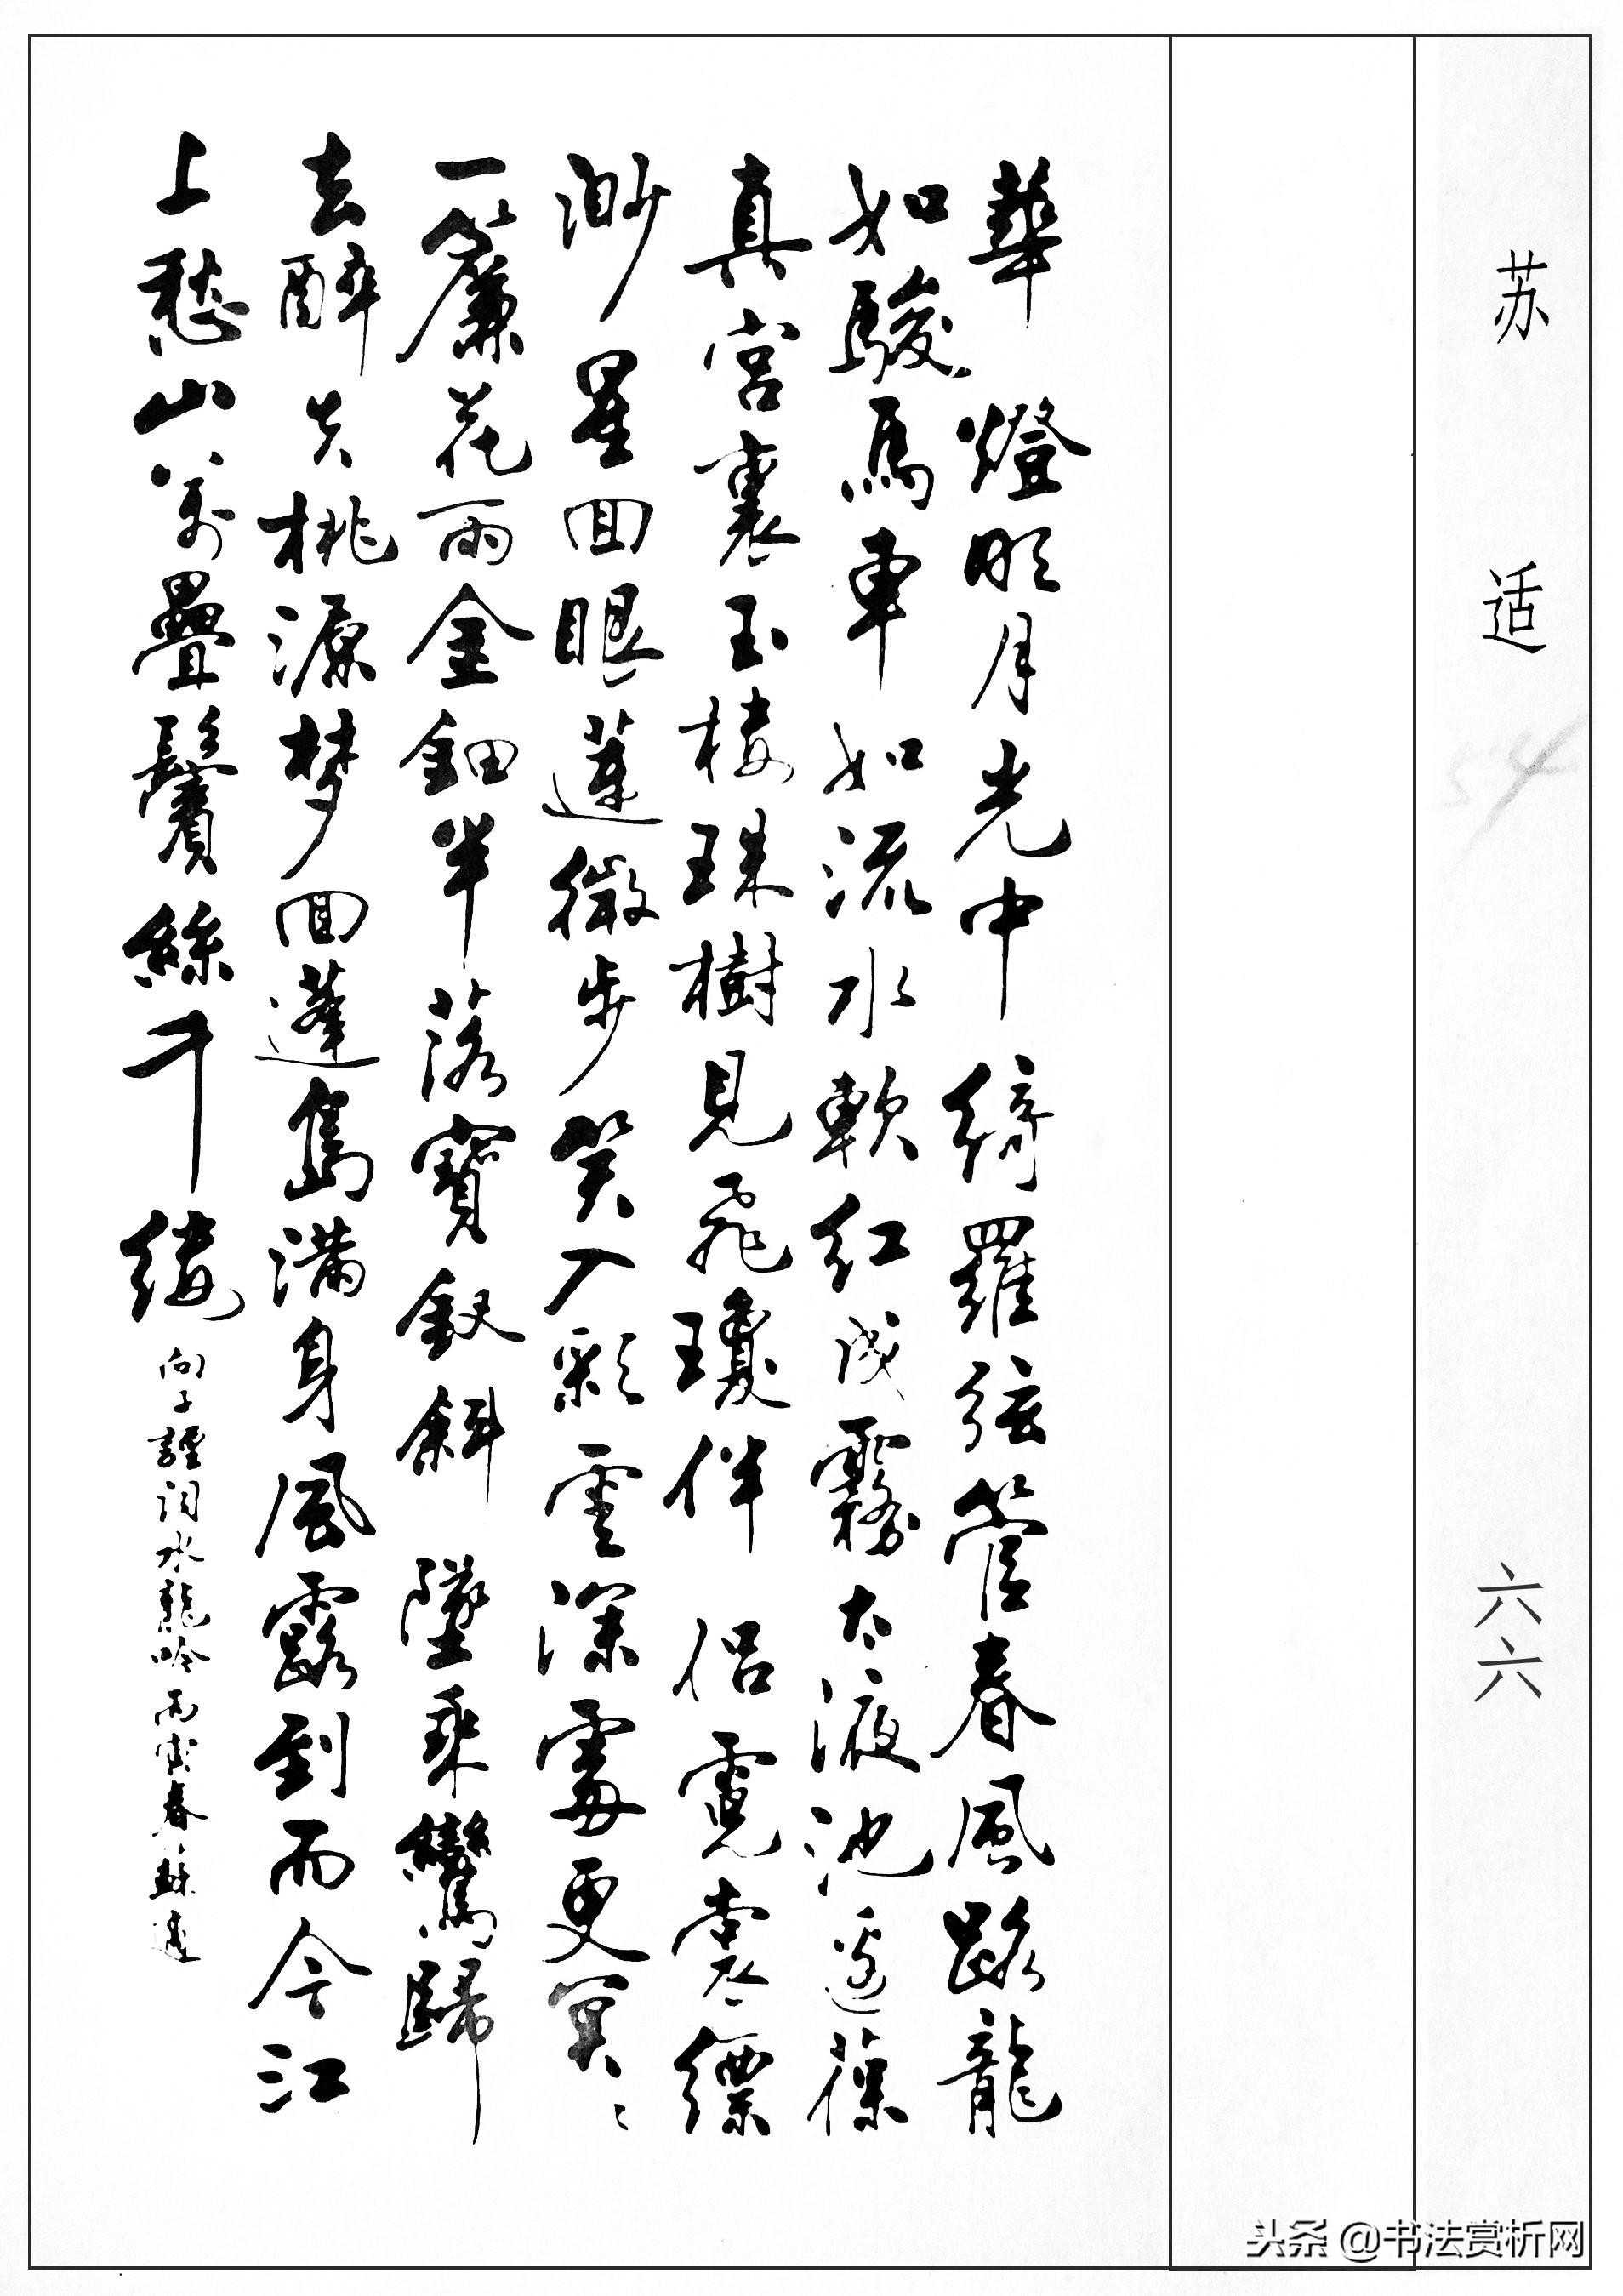 苏适
六六
華燈明月光中綺羅弦管春風路龍
如駿馬車如流水軟紅成霧太液池邊葆
真宮裏玉樓珠樹見飛瓊伴侶霓裳縹
渺星回眼蓮微步笑入彩雲深處更冥々
一簾花雨金鈿半落寶釵斜墜乘鸞歸
去醉失桃源梦回蓬島滿身風露到而今江
上愁山萬疊鬢絲千縷
向子諲詞水龍吟丙寅春蘇適
头条 @书法赏析网